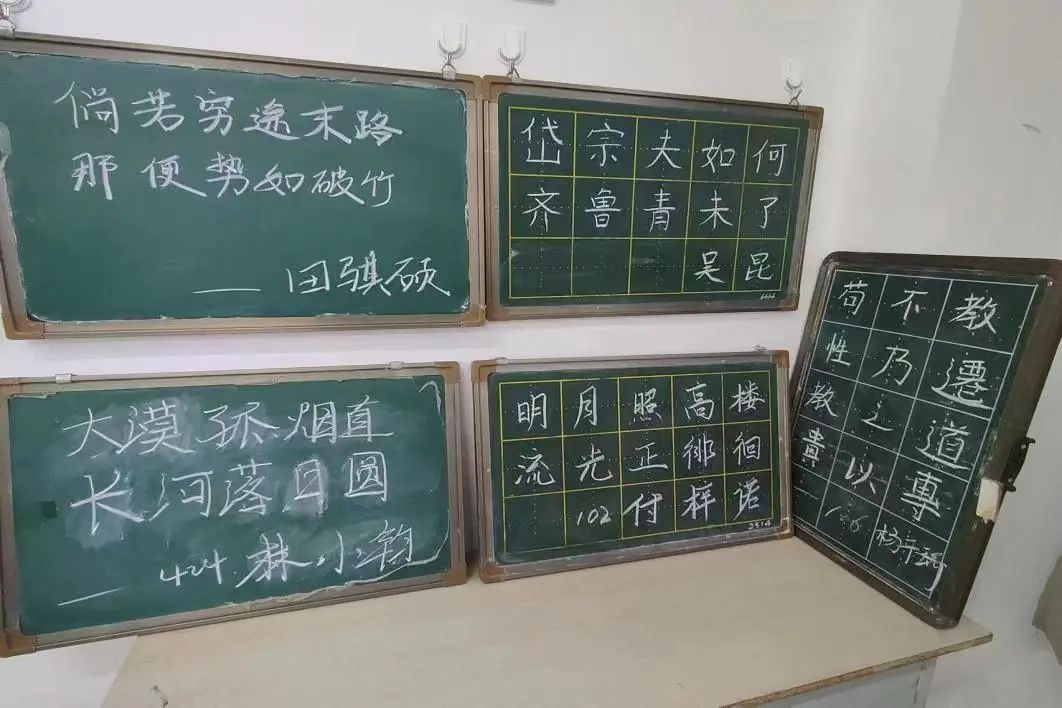 倘若穷途末路
那便势如破竹
——田骐硕
岱宗夫如何
齐鲁青未了
吴昆
大漠孤烟直
长河落日圆
——424 小
明月照高楼
流光正徘徊
102付梓诺
2514
苟不教
性乃遷
教之道
貴以專
杨